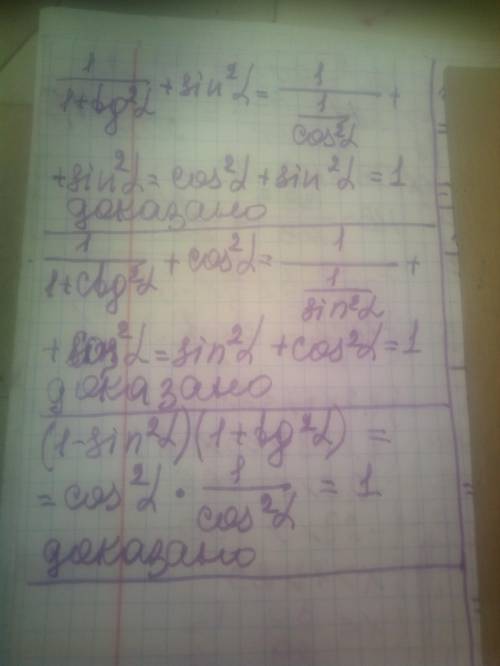 1/(1+tg²α) + sin²α = 1/(1/cos²α) +
+ sin²α = cos²α + sin²α = 1
доказано
1/(1+ctg²α) + cos²α = 1/(1/sin²α) +
+ cos²α = sin²α + cos²α = 1
доказано
(1-sin²α)(1+tg²α) =
= cos²α · 1/cos²α = 1
доказано